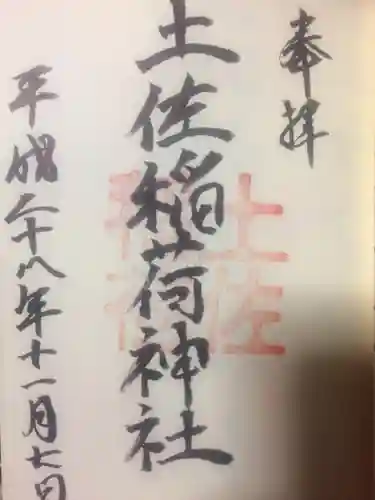 奉拝
土佐稲荷神社
平成二十八年十一月七日
土佐